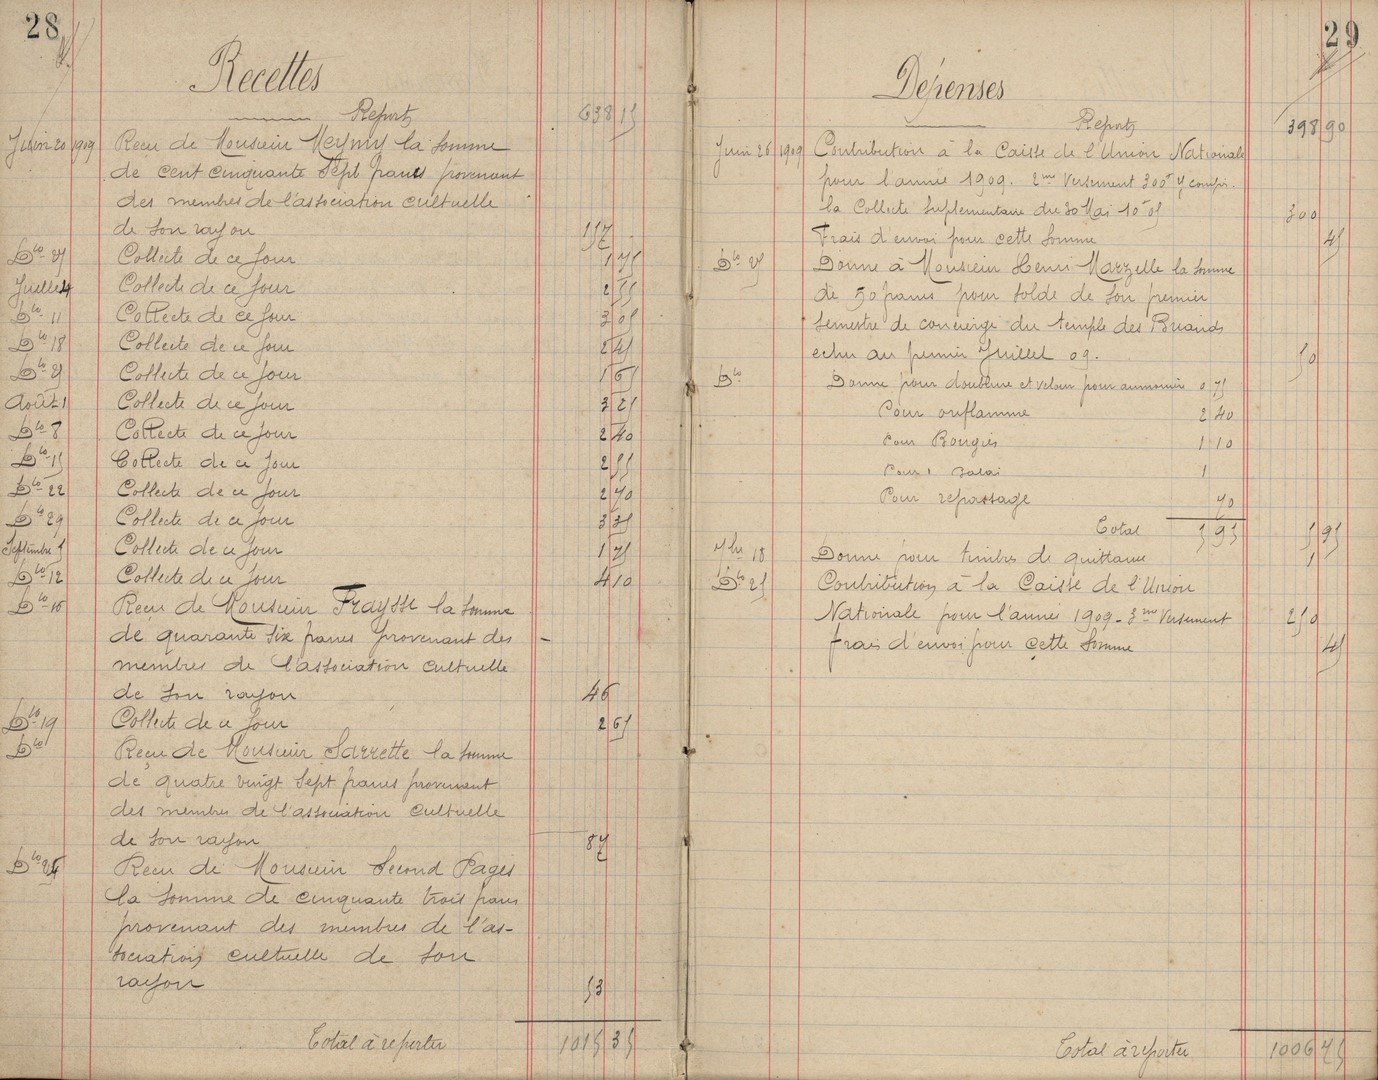 28
Recettes
Report 638 15
Juin 20 1909 Recu de Monsieur Meymy la Somme
de cent cinquante Sept francs provenant
des membres de l'association cultuelle
de son rayon 157
Dto 27 Collecte de ce Jour 1 75
Juillet 4 Collecte de ce Jour 2 55
Dto 11 Collecte de ce Jour 3 05
Dto 18 Collecte de ce Jour 2 45
Dto 25 Collecte de ce Jour 1 65
Août 1 Collecte de ce Jour 3 25
Dto 8 Collecte de ce Jour 2 40
Dto 15 Collecte de ce Jour 2 55
Dto 22 Collecte de ce Jour 2 70
Dto 29 Collecte de ce Jour 3 35
Septembre 5 Collecte de ce Jour 1 75
Dto 12 Collecte de ce Jour 4 10
Dto 16 Recu de Monsieur Fraysse la Somme
de quarante Six francs provenant des
membres de l'association cultuelle
de son rayon 46
Dto 19 Collecte de ce Jour 2 65
Dto Reçu de Monsieur Sarrette la Somme
de quatre vingt Sept francs provenant
des membres de l'association cultuelle
de son rayon 87
Dto Recu de Monsieur Second Pages
la Somme de cinquante trois francs
provenant des membres de l'as-
sociation cultuelle de son
rayon 53
Total à reporter 1015 35
29
Dépenses
Report 398 90
Juin 26 1909 Contribution à la Caisse de l'Union Nationale
pour l'année 1909. 2me Versement 300f y compris
la Collecte Suplementaire du 30 Mai 10f05 300
Frais d'envoi pour cette Somme 45
Dto 25 Donne à Monsieur Henri Marzelle la Somme
de 50 francs pour solde de son premier
Semestre de concierge du temple des Briands
echu au premier Juillet 09. 50
Dto Donne pour doublure et velour pour aumonière 0 75
Pour oriflamme 2 40
Pour Bougies 1 10
Pour 1 balai 1
Pour repassage 70
Total 5 95 5 95
7bre 18 Donne pour timbres de quittance 1
Dto 25 Contribution à la Caisse de l'Union
Nationale pour l'année 1909 - 3me Versement 250
frais d'envoi pour cette Somme 45
Total à reporter 1006 75